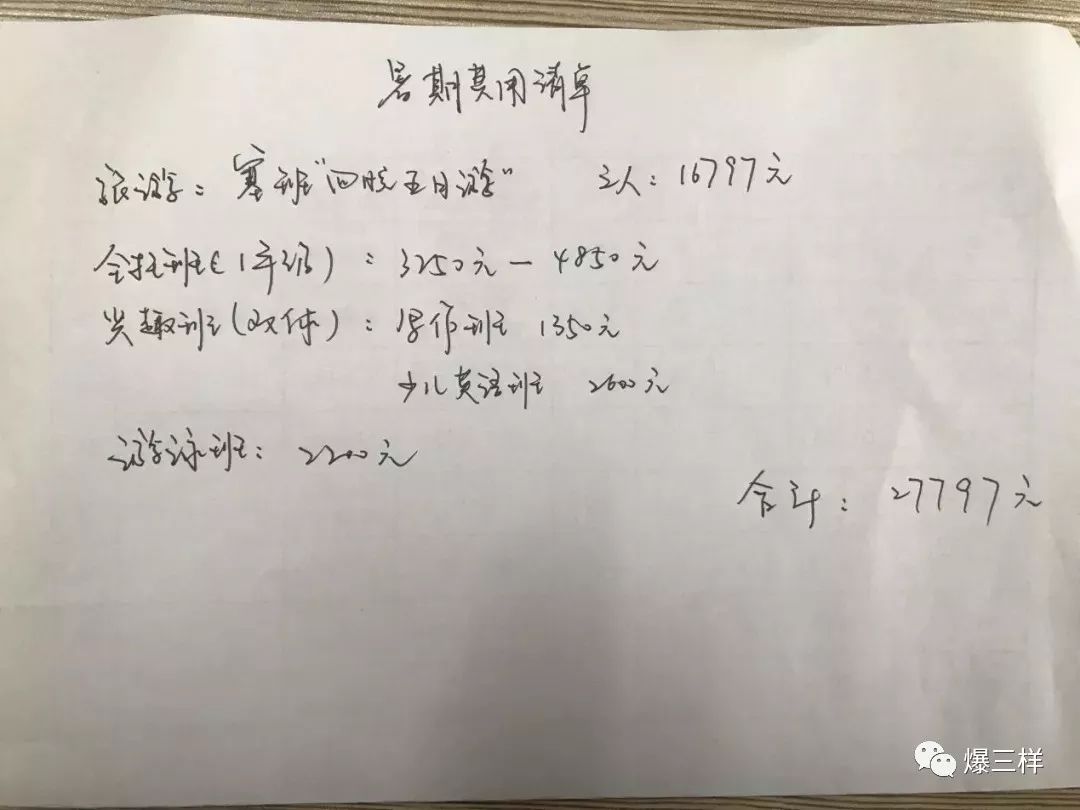 暑期费用清单
旅游：塞班"四晚五日游" 三人：16797元
全托班（1年级）：3250元－4850元
兴趣班（双休）：写作班 1350元
少儿英语班 2600元
游泳班：2200元
合计：27797元
爆三样